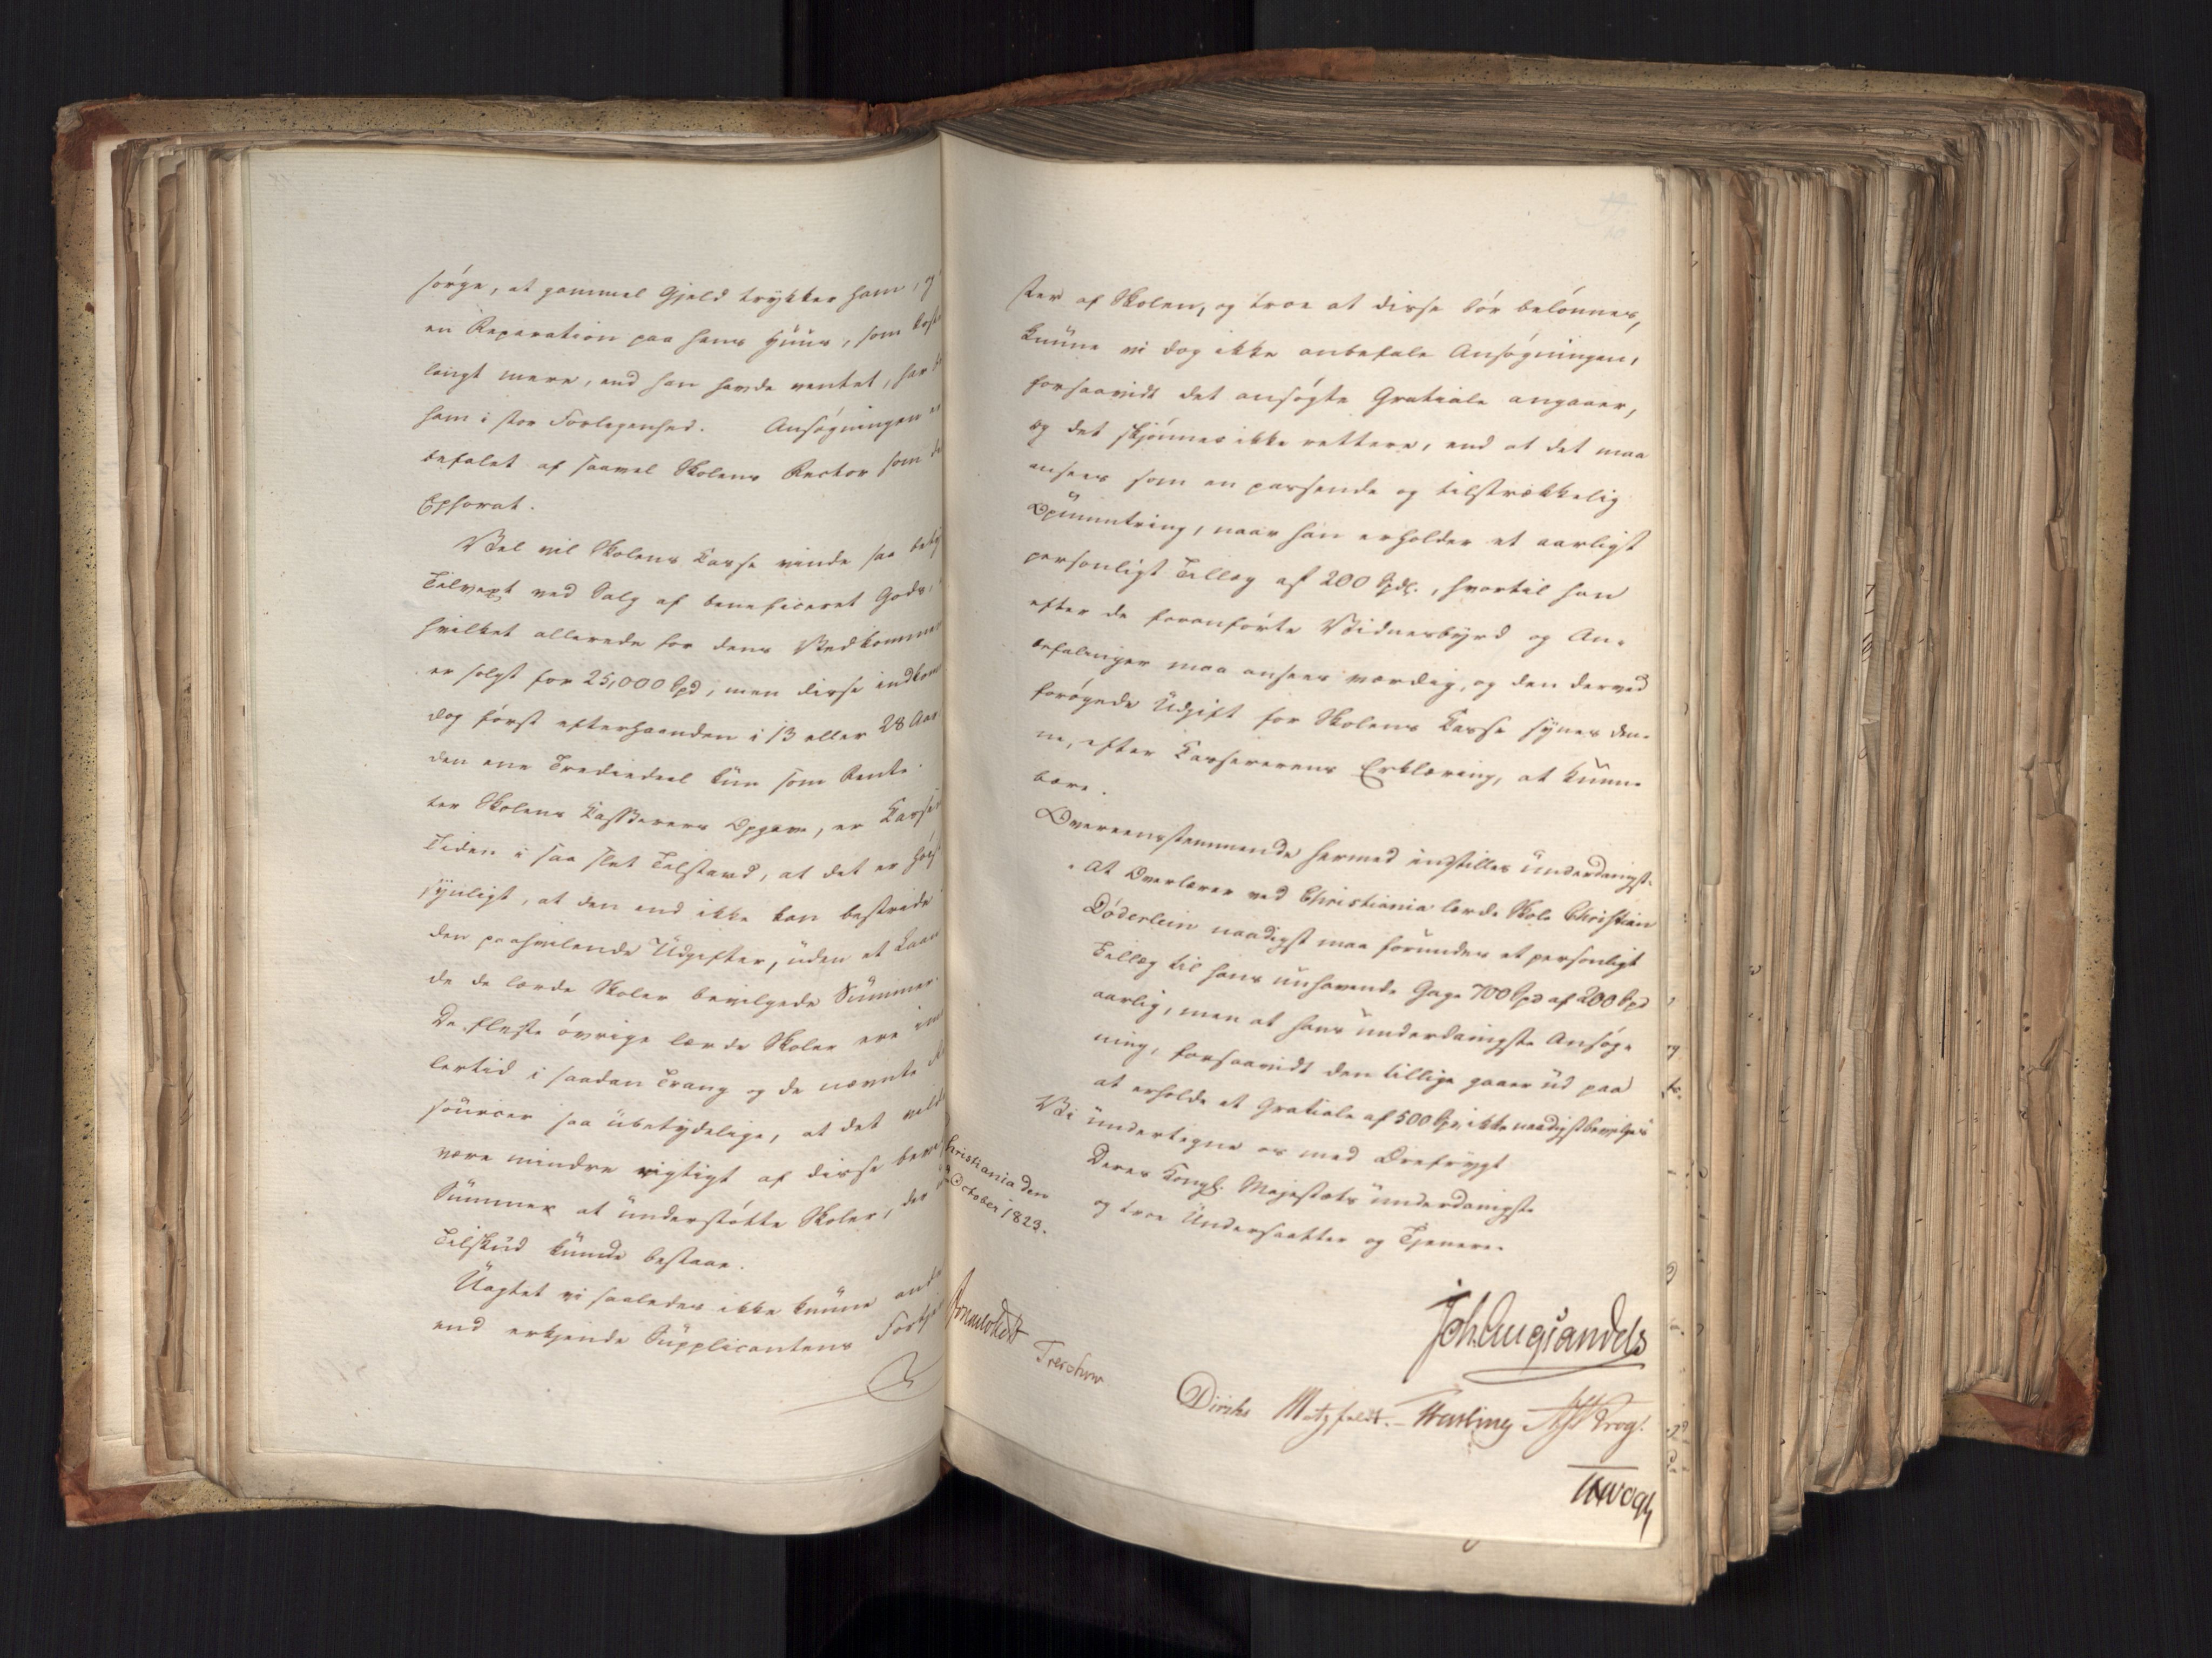 sørge, at gammel Gjeld trykker ham, og
en Reparation paa hans Huus, som kost
langt mere, end han havde ventet, har
ham i stor Forlegenhed. Ansøgningen er
befalet af saavel Skolens Rector som
Ephorat.
Vel vil Skolens Casse vinde saa bety
Tilvext ved Salg af beneficeret Gods,
hvilket allerede for dens Vedkommen
er solgt for 25,000 Spd; men disse indkom
dog først efterhaanden i 13 eller 28 Aar
den ene Trediedeel kun som Rente.
ter Skolens Casserers Opgave, er Cassen
Tiden i saa slet Tilstand, at det er høist
synligt, at den end ikke kan bestride
den paahvilende Udgifter, uden et Laan
de de lærde Skoler bevilgede Summer.
De fleste øvrige lærde Skoler ere im
lertid i saadan Trang og de nævnte
sourcer saa ubetydelige, at det vilde
være mindre rigtigt af disse bev
Summer at understøtte Skoler, der
Tilskud kunde bestaae.
Uagtet vi saaledes ikke kunne and
end erkjende Supplicantens Fortje
19.
20
ster af Skolen, og troe at disse bør belønnes,
kunne vi dog ikke anbefale Ansøgningen,
forsaavidt det ansøgte Gratiale angaaer,
og det skjønnes ikke rettere, end at det maa
ansees som en passende og tilstrækkelig
Opmuntring, naar han erholder et aarligt
personligt Tillæg af 200 Spd., hvortil han
efter de foranførte Vidnesbyrd og An-
befalinger maa ansees værdig, og den derved
forøgede Udgift for Skolens Casse synes den-
ne, efter Cassererens Erklæring, at kunne
bære.
Overeensstemmende hermed indstilles underdanigst:
at Overlærer ved Christiania lærde Skole Christian
Døderlein naadigst maa forundes et personligt
Tillæg til hans nuhavende Gage 700 Spd af 200 Spd
aarlig, men at hans underdanigste Ansøg-
ning, forsaavidt den tillige gaaer ud paa
at erholde et Gratiale af 500 Spd, ikke naadigst bevilges
Vi undertegne os med Ærefrygt
Deres Kongl. Majestæts underdanigste
og troe Undersaatter og Tjenere.
Christiania den
October 1823.
Joh. Aug. Sandels
Treschow
Diriks Motzfeldt. Fasting Krog.
Vogt